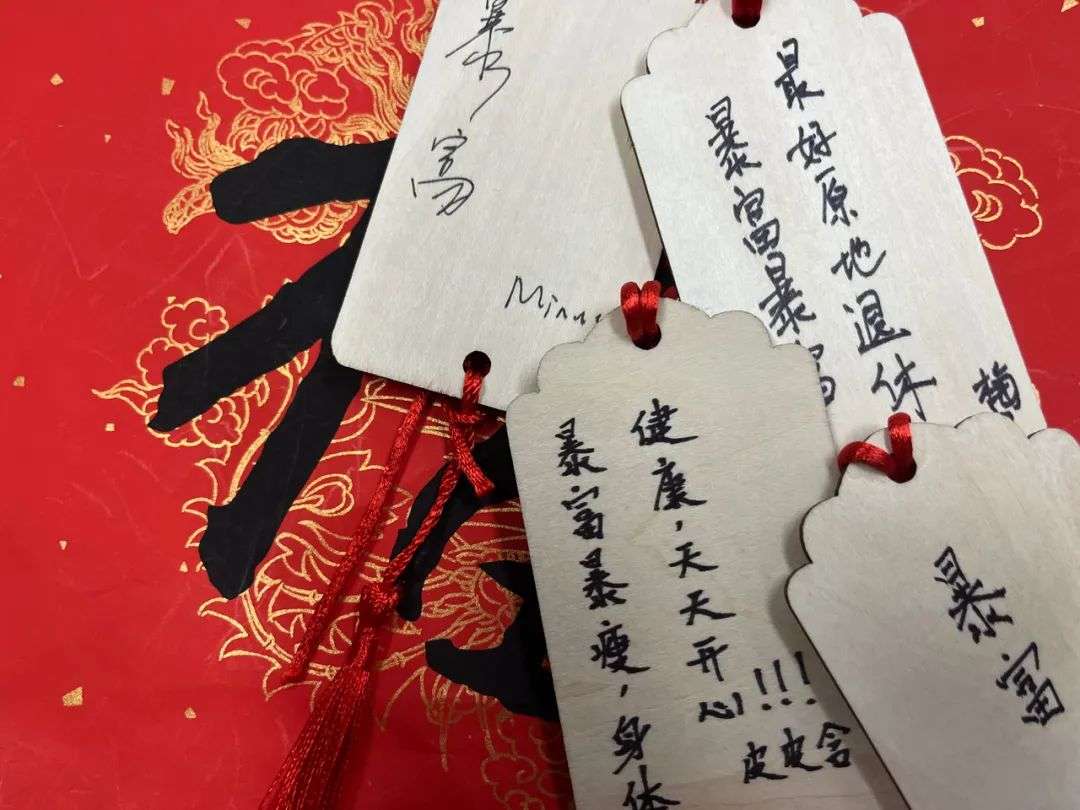 暴富
暴富暴富
最好原地退休
暴富暴瘦，身体
健康，天天开心!!!
皮皮
暴富